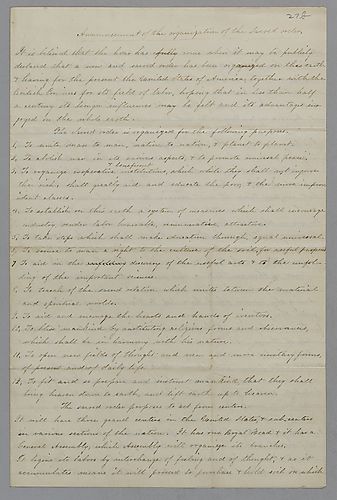 278
Announcement of the organization of the Sacred order.
It is believed that the hour has fully come when it may be publicly
declared that a new and sacred order has been organized on this earth
& having for the present the United States of America, together with the
British for its field of labor, hoping that in less than half
a century its benign influences may be felt and its advantages en-
joyed in the whole earth.
The Sacred order is organized for the following purposes.
1. To unite man to man, nation to nation, & planet to planet.
2. To abolish war in its various aspects, & to promote universal peace,
3. To organize cooperative institutions, which while they shall not impover
the rich, shall greatly aid and educate the poor, & the more improv-
ident classes.
4. To establish on this earth a system of measures which shall encourage
industry, render labor honorable, remunerative, attractive.
5. To take steps which shall make education thorough, equal, universal.
6. To secure to man a right to the culture of the soil, for useful purposes
7. To aid in the discovery of the useful arts & to the unfol-
ding of the important sciences.
8. To teach of the sacred relation which unites between the material
and spiritual worlds.
9. To aid and encourage the heads and hands of inventors.
10. To bless mankind by instituting religious forms and observances,
which shall be in harmony with his nature.
11. To open new fields of thought and new and more salutary forms,
of person and of daily life.
12. To fit and so prepare and instruct mankind that they shall
bring heaven down to earth, and lift earth up to heaven.
The sacred order proposes to act from centres.
It will have three grand centres in the United States, & sub-centres
in various sections of the nation. It has one Royal Head & it has a
General Assembly, which Assembly will organize its branches.
It begins its labors by interchange of feeling and of thought, & as it
accumulates means it will proceed to purchase & hold soil on which